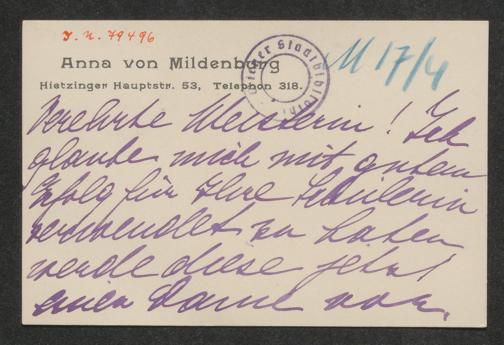 J. N. 79496
Anna von Mildenburg
Hietzinger Hauptstr. 53, Telephon 318.
Wiener Stadtbibliothek
M 17/4
Verehrte Meisterin! Ich
glaube mich mit gutem
Erfolg für Ihre Schülerin
verwendet zu haben
werde diese jetzt
einer Dame vor.